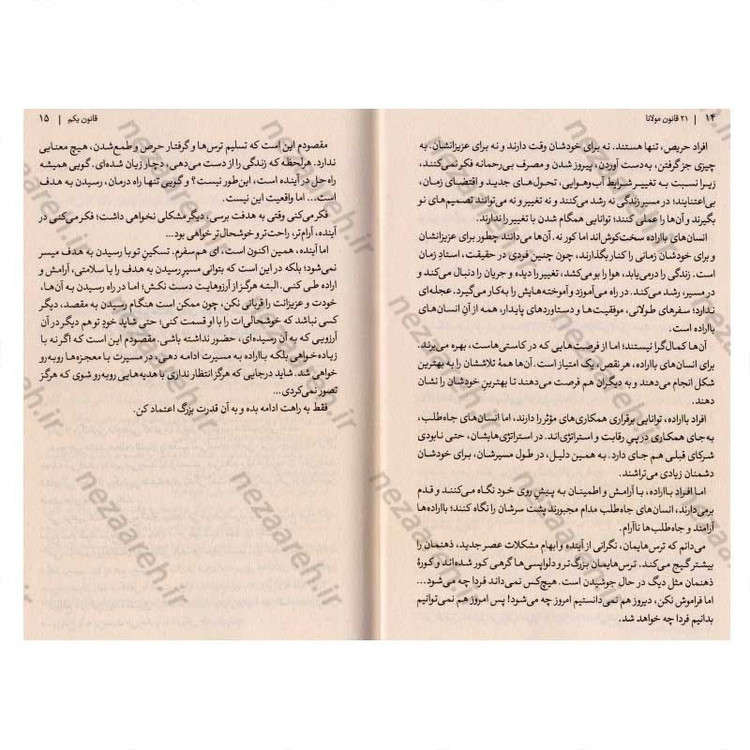 ۱۴ | ۲۱ قانون مولانا
افراد حریص، تنها هستند. نه برای خودشان وقت دارند و نه برای عزیزانشان. به
چیزی جز گرفتن، به‌دست آوردن، پیروز شدن و مصرف بی‌رحمانه فکر نمی‌کنند،
زیرا نسبت به تغییر شرایط آب‌وهوایی، تحول‌های جدید و اقتضای زمان،
بی‌اعتنایند؛ در مسیر زندگی نه رشد می‌کنند و نه تغییر و نه می‌توانند تصمیم‌های نو
بگیرند و آن‌ها را عملی کنند؛ توانایی همگام شدن با تغییر را ندارند.
انسان‌های بااراده سخت‌کوش‌اند اما کور نه. آن‌ها می‌دانند چطور برای عزیزانشان
و برای خودشان زمانی را کنار بگذارند، چون چنین فردی در حقیقت، استادِ زمان
است. زندگی را درمی‌یابد، هوا را بو می‌کشد، تغییر را دیده و جریان را دنبال می‌کند و
در مسیر، رشد می‌کند. در راه می‌آموزد و آموخته‌هایش را به‌کار می‌گیرد. عجله‌ای
ندارد؛ سفرهای طولانی، موفقیت‌ها و دستاوردهای پایدار، همه از آنِ انسان‌های
بااراده است.
آن‌ها کمال‌گرا نیستند؛ اما از فرصت‌هایی که در کاستی‌هاست، بهره می‌برند.
برای انسان‌های بااراده، هر نقص، یک امتیاز است. آن‌ها همهٔ تلاششان را به بهترین
شکل انجام می‌دهند و به دیگران هم فرصت می‌دهند تا بهترینِ خودشان را نشان
دهند.
افراد بااراده، توانایی برقراری همکاری‌های مؤثر را دارند، اما انسان‌های جاه‌طلب،
به جای همکاری در پیِ رقابت و استراتژی‌اند. در استراتژی‌هایشان، حتی نابودی
شرکای قبلی هم جای دارد. به همین دلیل، در طول مسیرشان، برای خودشان
دشمنان زیادی می‌تراشند.
اما افراد بااراده، با آرامش و اطمینان به پیشِ روی خود نگاه می‌کنند و قدم
برمی‌دارند، انسان‌های جاه‌طلب مدام مجبورند پشت سرشان را نگاه کنند؛ بااراده‌ها
آرامند و جاه‌طلب‌ها ناآرام.
می‌دانم که ترس‌هایمان، نگرانی از آینده و ابهام مشکلات عصر جدید، ذهنمان را
بیشتر گیج می‌کند. ترس‌هایمان بزرگ‌تر و دلواپسی‌ها گرهی کور شده‌اند و کورهٔ
ذهنمان مثل دیگ در حال جوشیدن است. هیچ‌کس نمی‌داند فردا چه می‌شود...
اما فراموش نکن، دیروز هم نمی‌دانستیم امروز چه می‌شود! پس امروز هم نمی‌توانیم
بدانیم فردا چه خواهد شد.
قانون یکم | ۱۵
مقصودم این است که تسلیم ترس‌ها و گرفتار حرص و طمع‌شدن، هیچ معنایی
ندارد. هرلحظه که زندگی را از دست می‌دهی، دچار زیان شده‌ای. گویی همیشه
راه حل در آینده است، این‌طور نیست؟ و گویی تنها راه درمان، رسیدن به هدف
است... اما واقعیت این نیست.
فکر می‌کنی وقتی به هدفت برسی، دیگر مشکلی نخواهی داشت؛ فکر می‌کنی در
آینده، آرام‌تر، راحت‌تر و خوشحال‌تر خواهی بود...
اما آینده، همین اکنون است، ای هم‌سفرم. تسکینِ تو با رسیدن به هدف میسر
نمی‌شود؛ بلکه در این است که بتوانی مسیر رسیدن به هدف را با سلامتی، آرامش و
اراده طی کنی. البته هرگز از آرزوهایت دست نکش؛ اما در راه رسیدن به آن‌ها،
خودت و عزیزانت را قربانی نکن، چون ممکن است هنگام رسیدن به مقصد، دیگر
کسی نباشد که خوشحالی‌ات را با او قسمت کنی؛ حتی شاید خودِ تو هم دیگر در آن
آرزویی که به آن رسیده‌ای، حضور نداشته باشی. مقصودم این است که اگر نه با
زیاده‌خواهی بلکه بااراده به مسیرت ادامه دهی، در مسیرت با معجزه‌ها روبه‌رو
خواهی شد. شاید درجایی که هرگز انتظار نداری با هدیه‌هایی روبه‌رو شوی که هرگز
تصور نمی‌کردی...
فقط به راهت ادامه بده و به آن قدرت بزرگ اعتماد کن.
nezaareh.ir